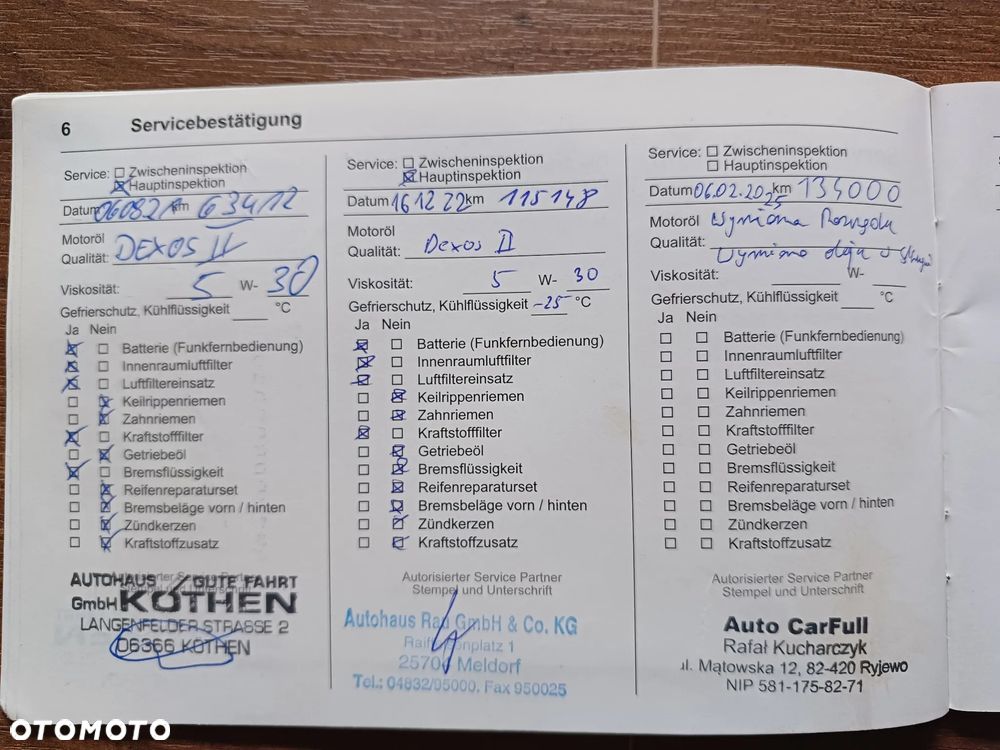 6 Servicebestätigung
Service: Zwischeninspektion
Hauptinspektion
Datum 060821 km 63412
Motoröl
Qualität: DEXOS II
Viskosität: 5 W- 30
Gefrierschutz, Kühlflüssigkeit °C
Ja Nein
Batterie (Funkfernbedienung)
Innenraumluftfilter
Luftfiltereinsatz
Keilrippenriemen
Zahnriemen
Kraftstofffilter
Getriebeöl
Bremsflüssigkeit
Reifenreparaturset
Bremsbeläge vorn / hinten
Zündkerzen
Kraftstoffzusatz
Autorisierter Service Partner
Stempel und Unterschrift
AUTOHAUS GUTE FAHRT
GmbH KÖTHEN
LANGENFELDER STRASSE 2
06366 KÖTHEN
Service: Zwischeninspektion
Hauptinspektion
Datum 16 12 22 km 115148
Motoröl
Qualität: Dexos II
Viskosität: 5 W- 30
Gefrierschutz, Kühlflüssigkeit -25 °C
Ja Nein
Batterie (Funkfernbedienung)
Innenraumluftfilter
Luftfiltereinsatz
Keilrippenriemen
Zahnriemen
Kraftstofffilter
Getriebeöl
Bremsflüssigkeit
Reifenreparaturset
Bremsbeläge vorn / hinten
Zündkerzen
Kraftstoffzusatz
Autorisierter Service Partner
Stempel und Unterschrift
Autohaus Rau GmbH & Co. KG
Raiffeisenplatz 1
25704 Meldorf
Tel.: 04832/95000, Fax 950025
Service: Zwischeninspektion
Hauptinspektion
Datum 06.02.2025 km 134000
Motoröl Wymiana Rozrządu
Qualität: Wymiana oleju
Viskosität: W-
Gefrierschutz, Kühlflüssigkeit °C
Ja Nein
Batterie (Funkfernbedienung)
Innenraumluftfilter
Luftfiltereinsatz
Keilrippenriemen
Zahnriemen
Kraftstofffilter
Getriebeöl
Bremsflüssigkeit
Reifenreparaturset
Bremsbeläge vorn / hinten
Zündkerzen
Kraftstoffzusatz
Autorisierter Service Partner
Stempel und Unterschrift
Auto CarFull
Rafał Kucharczyk
ul. Mątowska 12, 82-420 Ryjewo
NIP 581-175-82-71
OTOMOTO